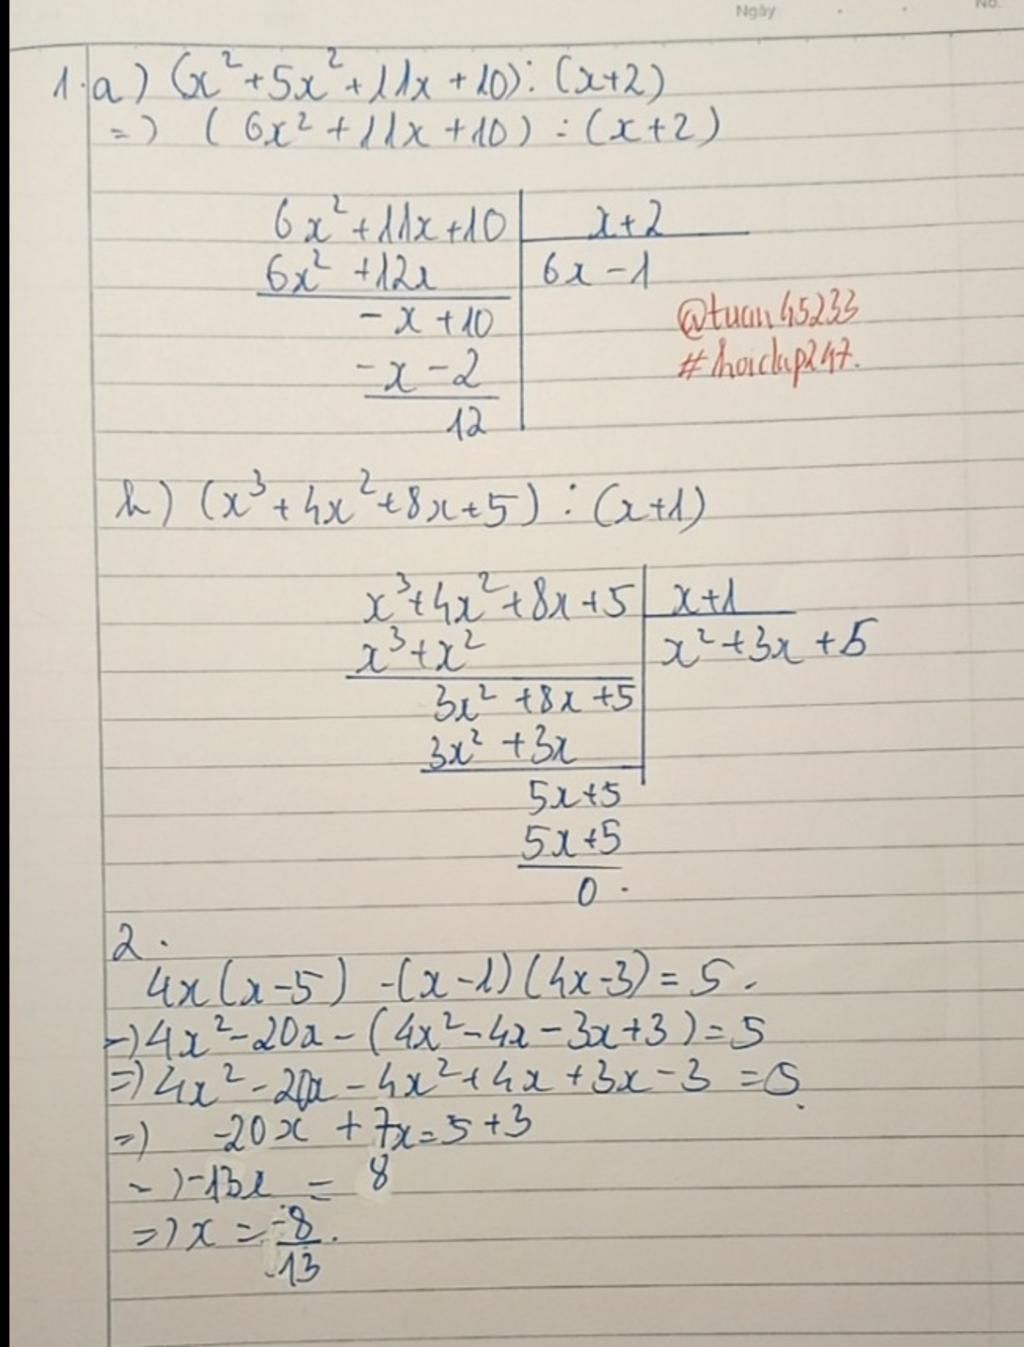 Ngày No.
1.a) (x²+5x²+11x+10):(x+2)
=) (6x²+11x+10):(x+2)
6x²+11x+10 | x+2
6x²+12x | 6x-1
-x+10
@tuan45233
-x-2
#hoidap247.
12
b) (x³+4x²+8x+5):(x+1)
x³+4x²+8x+5 | x+1
x³+x² | x²+3x+5
3x²+8x+5
3x²+3x
5x+5
5x+5
0.
2.
4x(x-5)-(x-1)(4x-3)=5.
=)4x²-20x-(4x²-4x-3x+3)=5
=)4x²-20x-4x²+4x+3x-3=5
=) -20x+7x=5+3
=)-13x=8
=)x=-8/13.